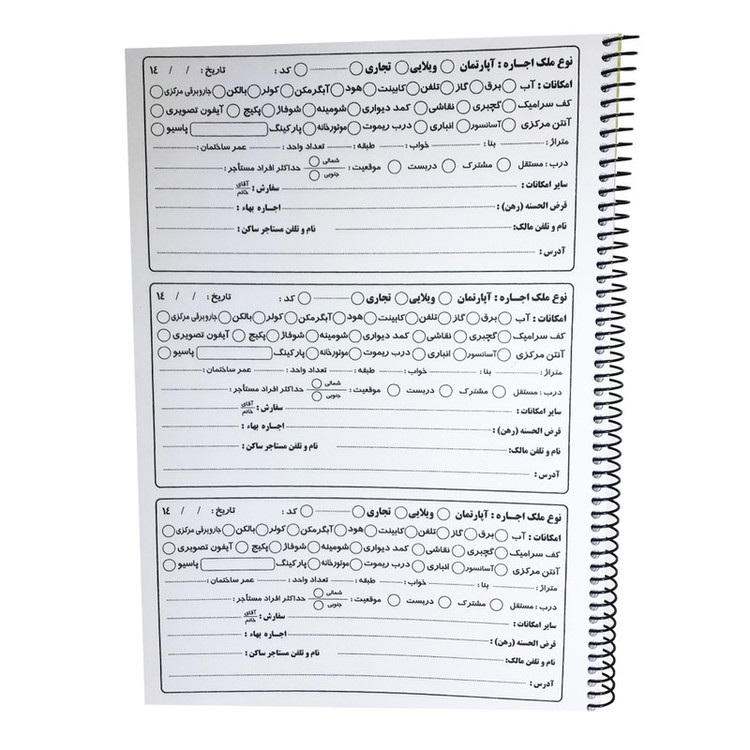 نوع ملک اجاره : آپارتمان ویلایی تجاری کد : تاریخ : / / ۱۴
امکانات : آب برق گاز تلفن کابینت هود آبگرمکن کولر بالکن جاروبرقی مرکزی
کف سرامیک گچبری نقاشی کمد دیواری شومینه شوفاژ پکیج آیفون تصویری
آنتن مرکزی آسانسور انباری درب ریموت موتورخانه پارکینگ پاسیو
متراژ : بنا : خواب : طبقه : تعداد واحد : عمر ساختمان :
درب : مستقل مشترک دربست موقعیت : شمالی جنوبی حداکثر افراد مستأجر :
سایر امکانات : سفارش : آقای خانم
قرض الحسنه (رهن) : اجاره بهاء :
نام و تلفن مالک: نام و تلفن مستاجر ساکن :
آدرس :
نوع ملک اجاره : آپارتمان ویلایی تجاری کد : تاریخ : / / ۱۴
امکانات : آب برق گاز تلفن کابینت هود آبگرمکن کولر بالکن جاروبرقی مرکزی
کف سرامیک گچبری نقاشی کمد دیواری شومینه شوفاژ پکیج آیفون تصویری
آنتن مرکزی آسانسور انباری درب ریموت موتورخانه پارکینگ پاسیو
متراژ : بنا : خواب : طبقه : تعداد واحد : عمر ساختمان :
درب : مستقل مشترک دربست موقعیت : شمالی جنوبی حداکثر افراد مستأجر :
سایر امکانات : سفارش : آقای خانم
قرض الحسنه (رهن) : اجاره بهاء :
نام و تلفن مالک: نام و تلفن مستاجر ساکن :
آدرس :
نوع ملک اجاره : آپارتمان ویلایی تجاری کد : تاریخ : / / ۱۴
امکانات : آب برق گاز تلفن کابینت هود آبگرمکن کولر بالکن جاروبرقی مرکزی
کف سرامیک گچبری نقاشی کمد دیواری شومینه شوفاژ پکیج آیفون تصویری
آنتن مرکزی آسانسور انباری درب ریموت موتورخانه پارکینگ پاسیو
متراژ : بنا : خواب : طبقه : تعداد واحد : عمر ساختمان :
درب : مستقل مشترک دربست موقعیت : شمالی جنوبی حداکثر افراد مستأجر :
سایر امکانات : سفارش : آقای خانم
قرض الحسنه (رهن) : اجاره بهاء :
نام و تلفن مالک: نام و تلفن مستاجر ساکن :
آدرس :